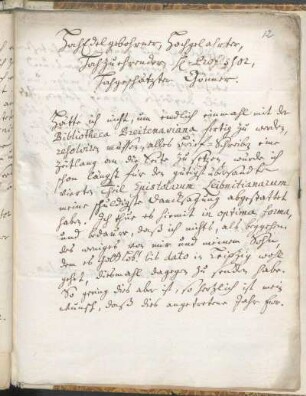 12
HochEdelgebohrner, Hochgelahrter,
Hochzuehrender Hr. Professor,
Hochgeschätzter Gönner.
Hätte ich nicht, um endlich einmahl mit der
Bibliotheca Breitenaviana fertig zu werden,
resolviren müssen, alles Brief-Schreiben eine
Zeitlang an die Seite zu setzen, würde ich
schon längst für den gütigst übersandten
vierten Theil Epistolarum Leibnitianarum
meine schuldigste Dancksagung abgestattet
haben. Ich thue es hiemit in optima forma,
und bedaure, daß ich nichts, als
des weniges von mir und meinem Sohn,
dem es Gottlob! bis dato in Leipzig wohl
gehet, diesmahl dagegen zu senden habe.
So gering dies aber ist, so herzlich ist mein
Wunsch, daß dies angetretene Jahr